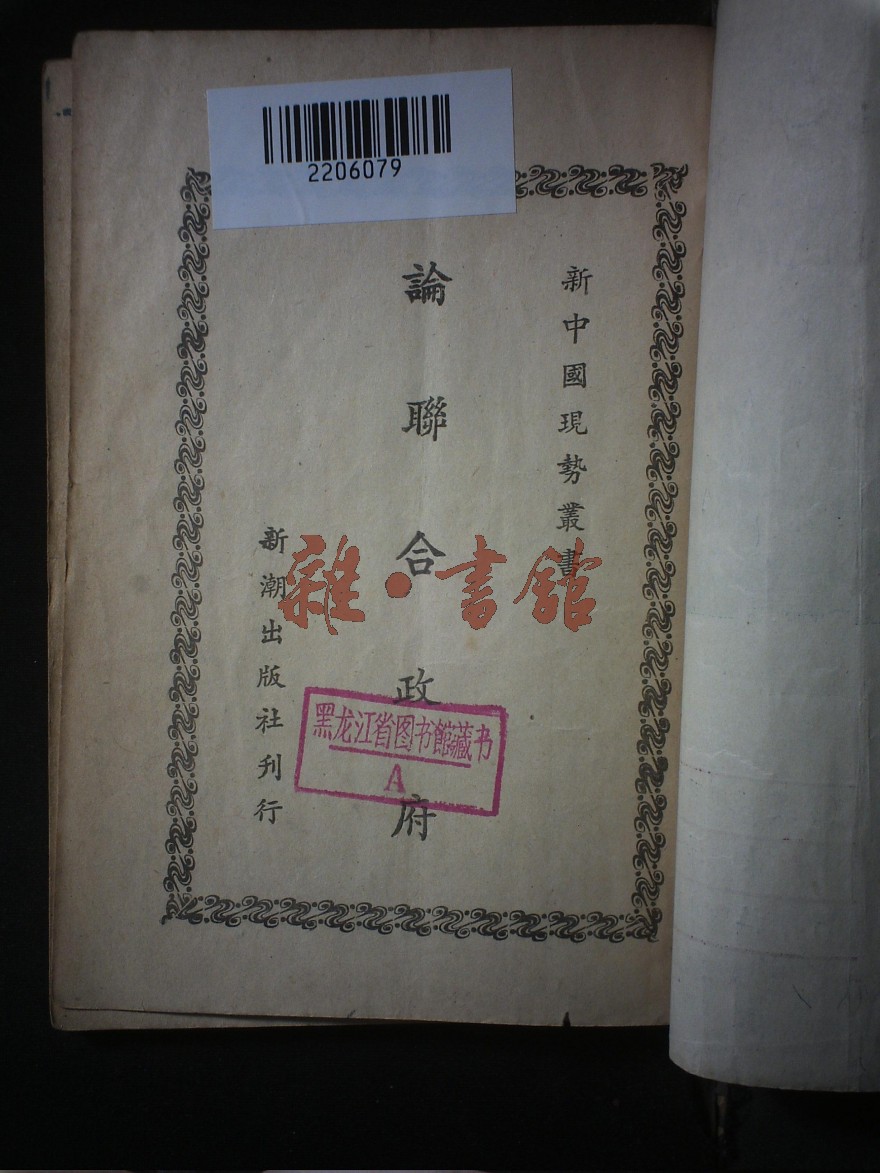 2206079
新中國現勢叢書
論聯合政府
新潮出版社刊行
雜·書館
黑龙江省图书館藏书
A